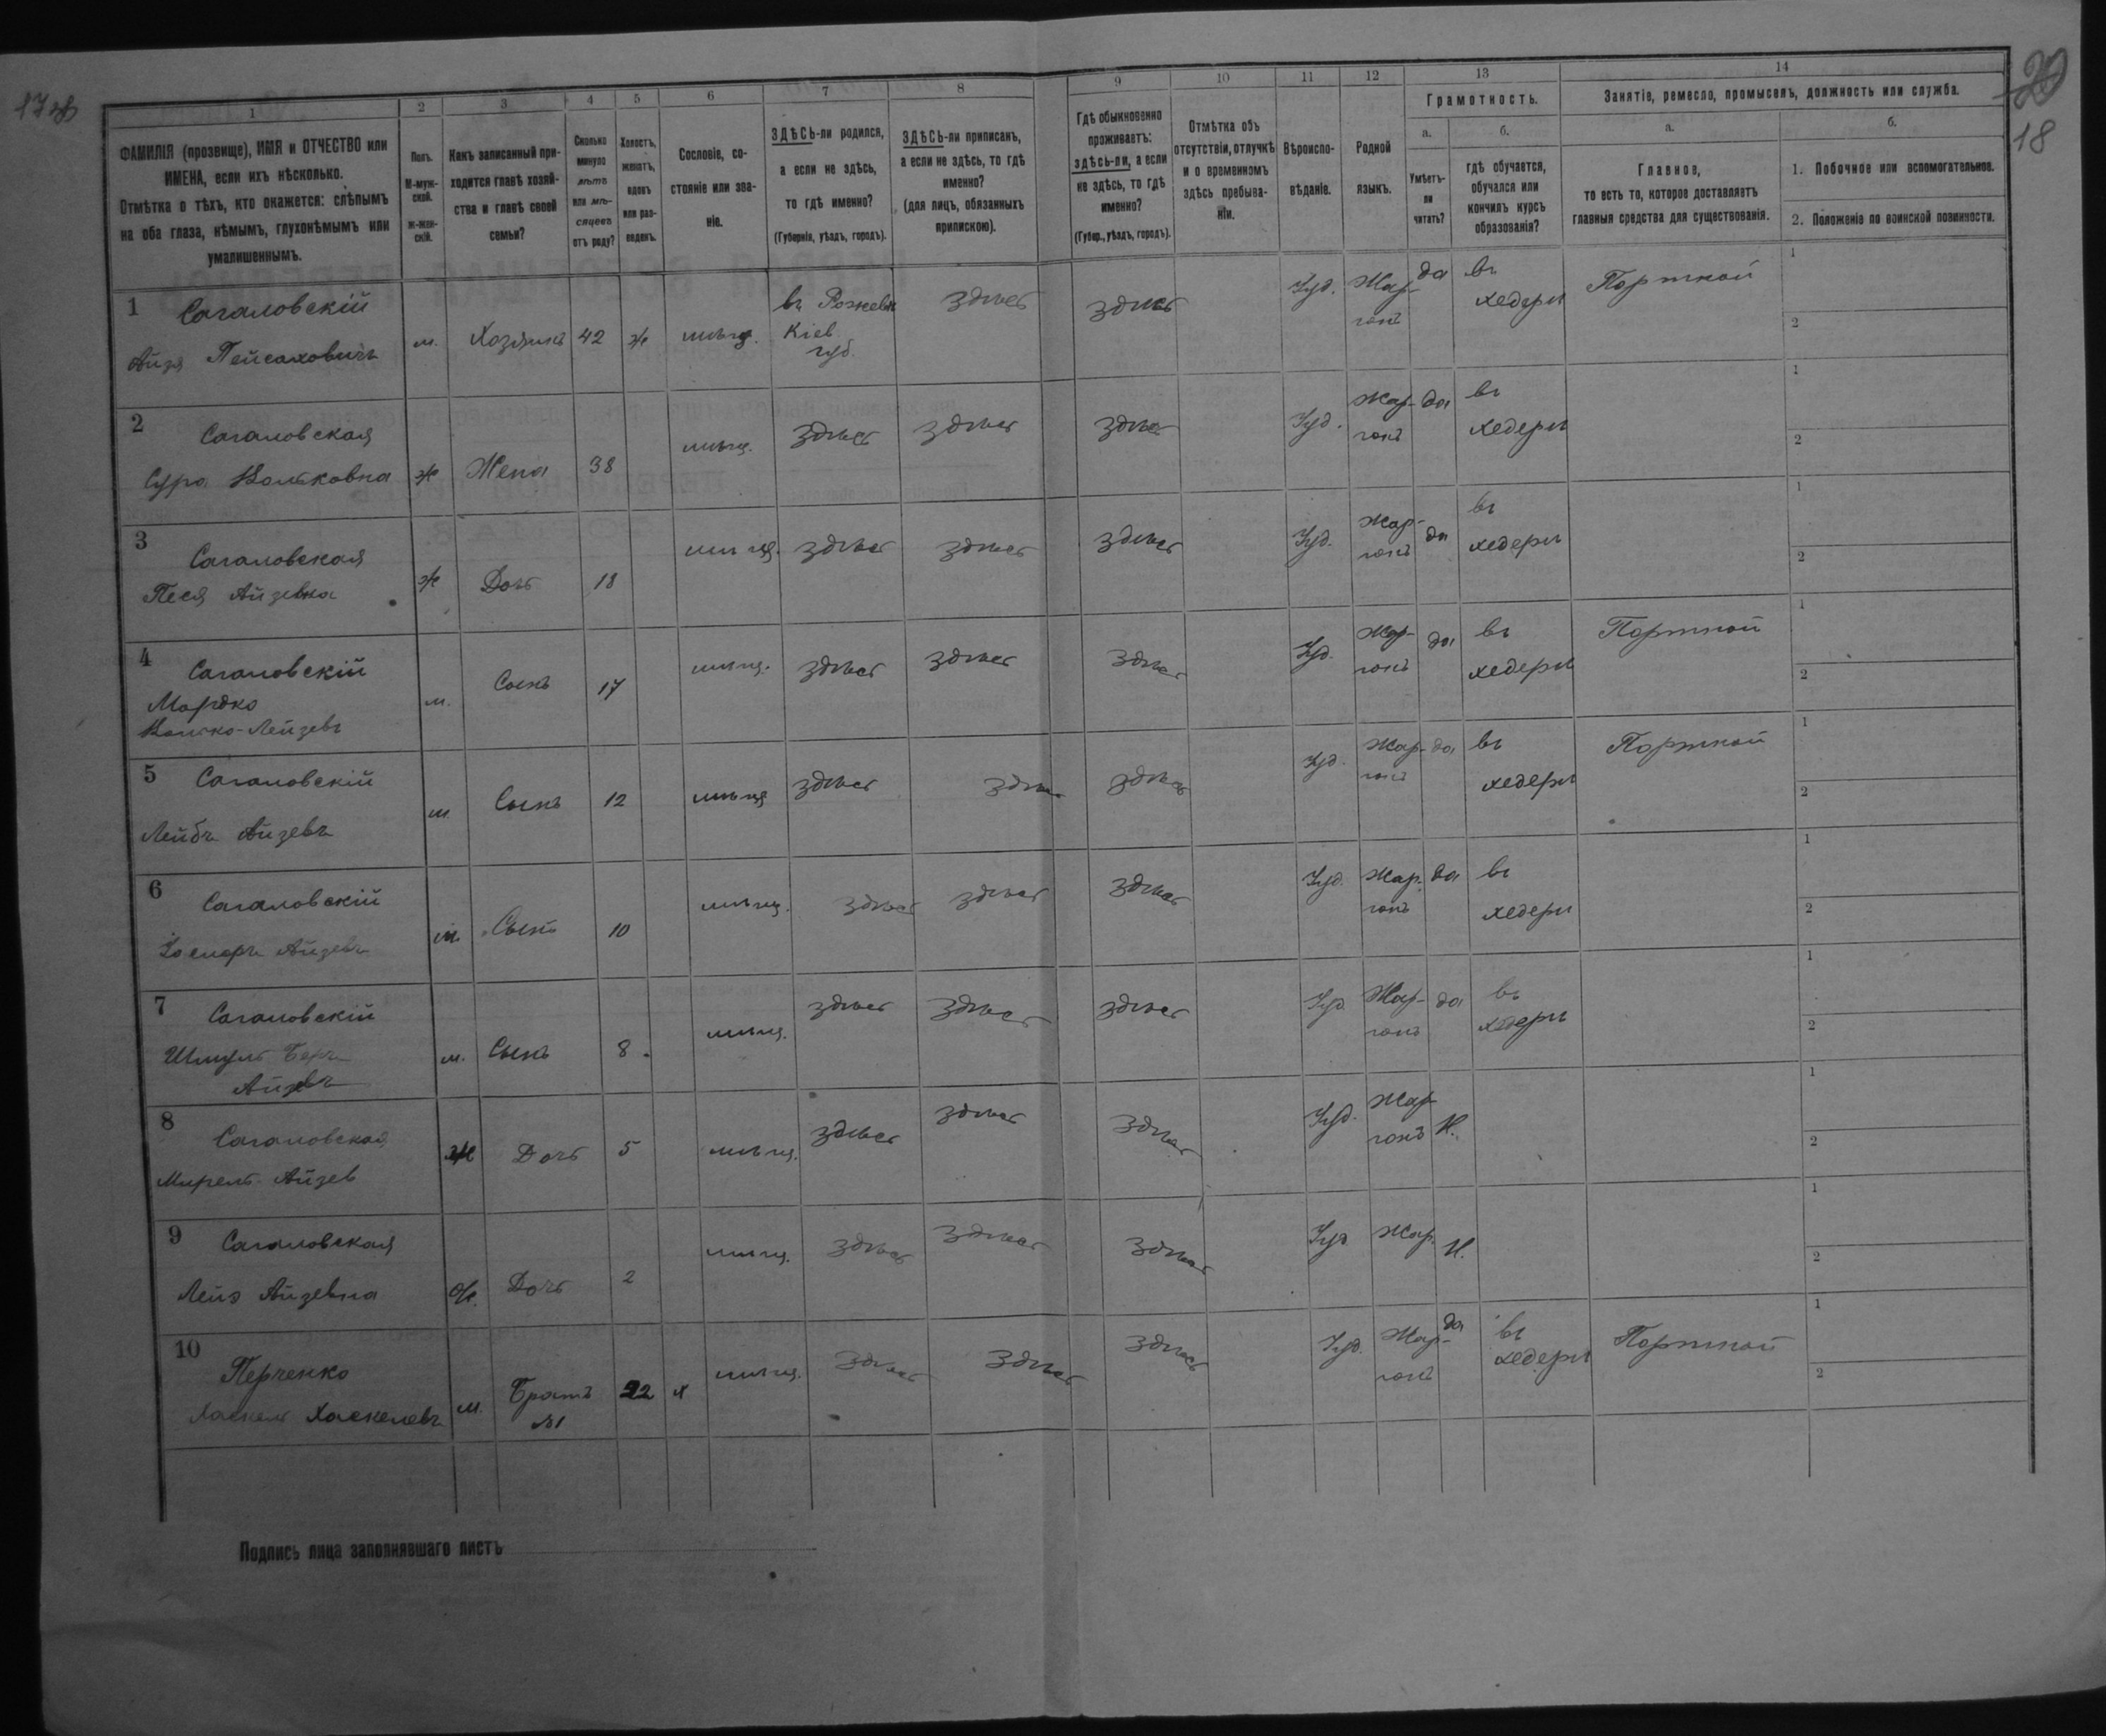 17
20
18
1 2 3 4 5 6 7 8 9 10 11 12 13 14
ФАМИЛІЯ (прозвище), ИМЯ и ОТЧЕСТВО или
ИМЕНА, если ихъ нѣсколько.
Отмѣтка о тѣхъ, кто окажется: слѣпымъ
на оба глаза, нѣмымъ, глухонѣмымъ или
умалишеннымъ.
Полъ.
М-муж-
ской.
Ж-жен-
скій.
Какъ записанный при-
ходится главѣ хозяй-
ства и главѣ своей
семьи?
Сколько
минуло
лѣтъ
или мѣ-
сяцевъ
отъ роду?
Холостъ,
женатъ,
вдовъ
или раз-
веденъ.
Сословіе, со-
стояніе или зва-
ніе.
ЗДѢСЬ-ли родился,
а если не здѣсь,
то гдѣ именно?
(Губернія, уѣздъ, городъ).
ЗДѢСЬ-ли приписанъ,
а если не здѣсь, то гдѣ
именно?
(для лицъ, обязанныхъ
припискою).
Гдѣ обыкновенно
проживаетъ:
здѣсь-ли, а если
не здѣсь, то гдѣ
именно?
(Губер., уѣздъ, городъ).
Отмѣтка объ
отсутствіи, отлучкѣ
и о временномъ
здѣсь пребыва-
ніи.
Вѣроиспо-
вѣданіе.
Родной
языкъ.
Грамотность.
а.
Умѣетъ-
ли
читать?
б.
гдѣ обучается,
обучался или
кончилъ курсъ
образованія?
Занятіе, ремесло, промыселъ, должность или служба.
а.
Главное,
то есть то, которое доставляетъ
главныя средства для существованія.
б.
1. Побочное или вспомогательное.
2. Положеніе по воинской повинности.
1 Сагаловскій
Айзя Пейсаховичъ
м. Хозяинъ 42 ж мѣщ.
въ Рожевѣ
Кіев.
губ.
здѣсь здѣсь Іуд. Жар-
гонъ
да въ
хедерѣ
Портной
1
2
2 Сагаловская
Сура Волковна
ж Жена 38 мѣщ. здѣсь здѣсь здѣсь Іуд. Жар-
гонъ
да въ
хедерѣ
1
2
3 Сагаловская
Песя Айзевна
ж Дочь 18 мѣщ. здѣсь здѣсь здѣсь Іуд. Жар-
гонъ
да въ
хедерѣ
1
2
4 Сагаловскій
Мордко
м. Сынъ 17 мѣщ. здѣсь здѣсь здѣсь Іуд. Жар-
гонъ
да въ
хедерѣ
Портной
1
2
5 Сагаловскій
Лейбъ Айзевъ
м. Сынъ 12 мѣщ здѣсь здѣсь здѣсь Іуд. Жар-
гонъ
да въ
хедерѣ
Портной
1
2
6 Сагаловскій
Айзевъ
м. Сынъ 10 мѣщ. здѣсь здѣсь здѣсь Іуд. Жар-
гонъ
да въ
хедерѣ
1
2
7 Сагаловскій
Шмуль Беръ
Айзевъ
м. Сынъ 8 мѣщ. здѣсь здѣсь здѣсь Іуд Жар-
гонъ
да въ
хедерѣ
1
2
8 Сагаловская
Мирель Айзев
ж Дочь 5 мѣщ. здѣсь здѣсь здѣсь Іуд. Жар
гонъ
Н.
1
2
9 Сагаловская
Айзевна
ж. Дочь 2 мѣщ. здѣсь здѣсь здѣсь Іуд Жар. Н.
1
2
10 Перченко
Хаскель Хаскелевъ
м. Братъ
№1
22 х мѣщ. здѣсь здѣсь здѣсь Іуд. Жар-
гонъ
да въ
хедерѣ
Портной
1
2
Подпись лица заполнявшаго листъ